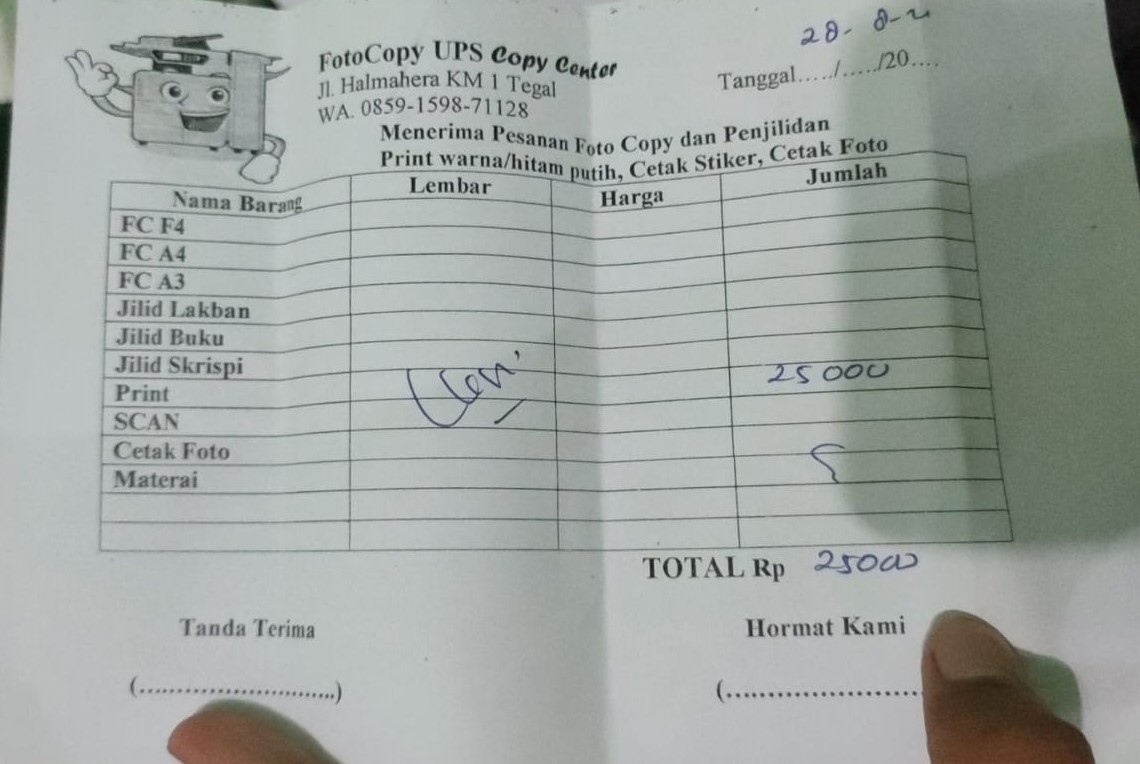 28- 8-2
FotoCopy UPS Copy Center
Jl. Halmahera KM 1 Tegal
WA. 0859-1598-71128
Tanggal...../...../20....
Menerima Pesanan Foto Copy dan Penjilidan
Print warna/hitam putih, Cetak Stiker, Cetak Foto
Nama Barang Lembar Harga Jumlah
FC F4
FC A4
FC A3
Jilid Lakban
Jilid Buku
Jilid Skrispi 25000
Print
SCAN
Cetak Foto
Materai
TOTAL Rp 25000
Tanda Terima Hormat Kami
(............................) (............................